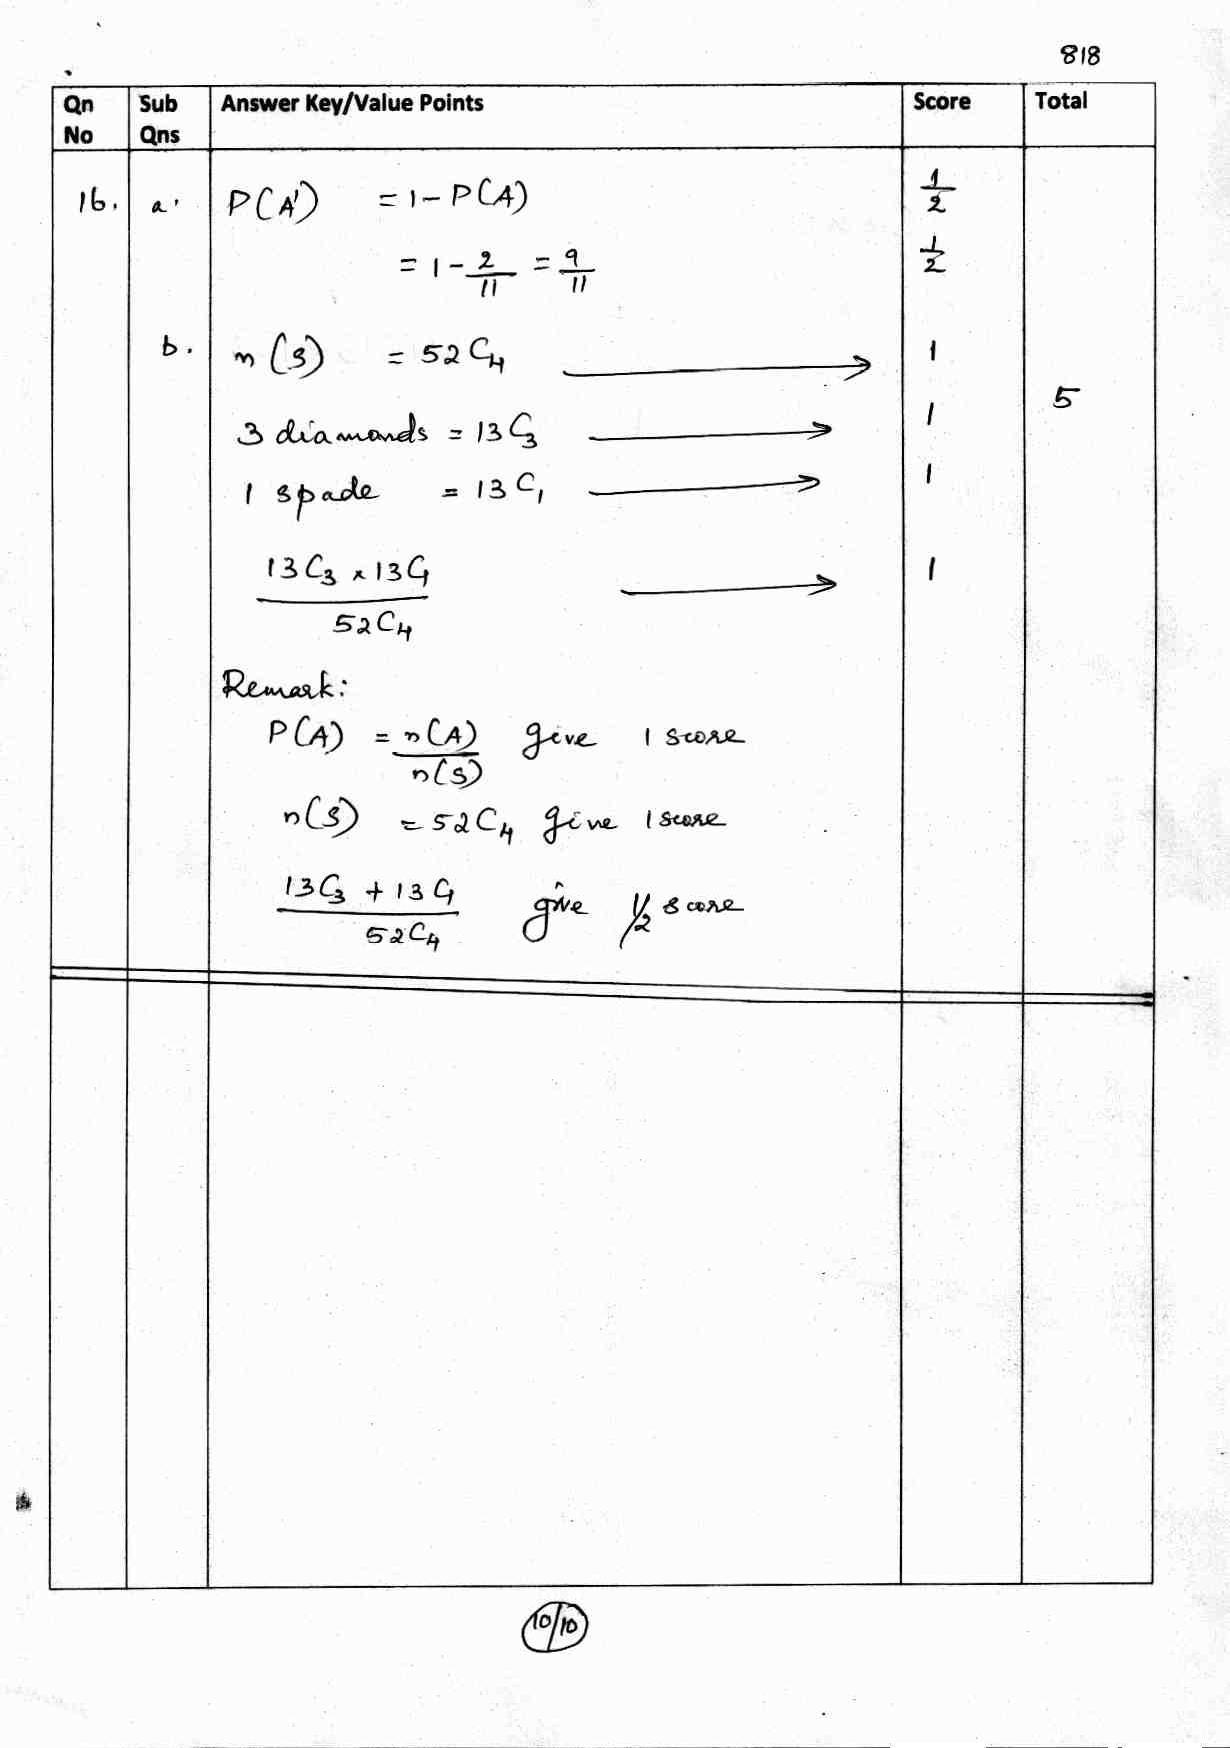 818
Qn No Sub Qns Answer Key/Value Points Score Total
16. a. P(A') = 1 - P(A) 1/2
= 1 - 2/11 = 9/11 1/2
b. n(S) = 52C4 → 1
5
3 diamonds = 13C3 → 1
1 spade = 13C1 → 1
13C3 × 13C1 / 52C4 → 1
Remark:
P(A) = n(A)/n(S) give 1 score
n(S) = 52C4 give 1 score
13C3 + 13C1 / 52C4 give 1/2 score
10/10